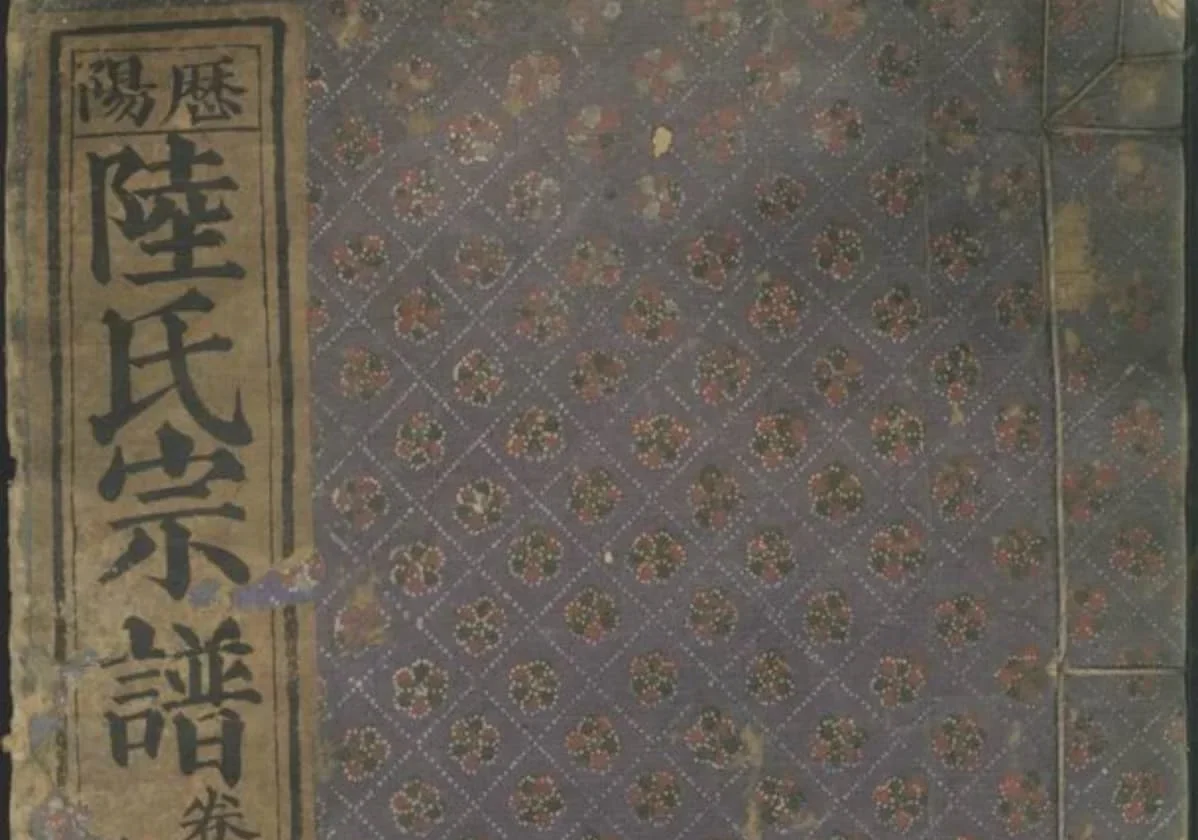 歷陽
陸氏宗譜
卷